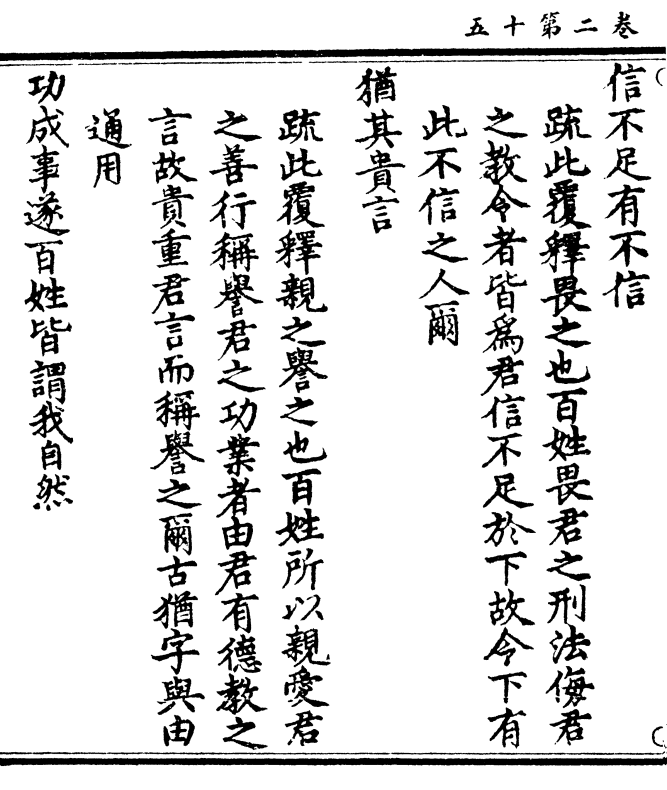 卷二第十五
信不足有不信
疏此覆釋畏之也百姓畏君之刑法侮君
之教令者皆爲君信不足於下故令下有
此不信之人爾
猶其貴言
疏此覆釋親之譽之也百姓所以親愛君
之善行稱譽君之功業者由君有德教之
言故貴重君言而稱譽之爾古猶字與由
通用
功成事遂百姓皆謂我自然